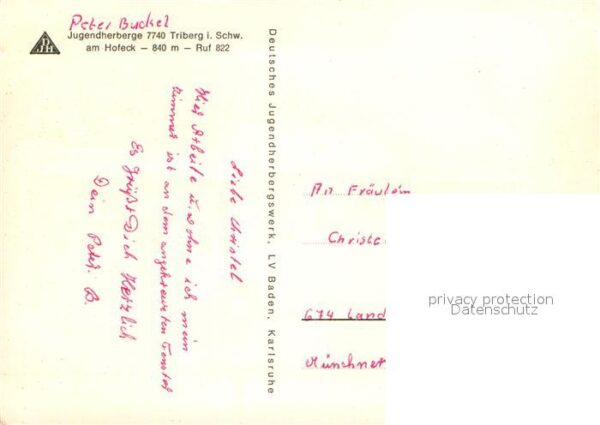 Peter Buckel
Jugendherberge 7740 Triberg i. Schw.
am Hofeck – 840 m – Ruf 822
DJH
Liebe Christel
Hier Arbeite u. wohne ich mein
Zimmer ist an dem angekreuzten Fenster
Es grüßt Dich Herzlich
Dein Peter. B.
Deutsches Jugendherbergswerk, LV Baden, Karlsruhe
An Fräulein
Christe
674 Land
Münchner
privacy protection
Datenschutz